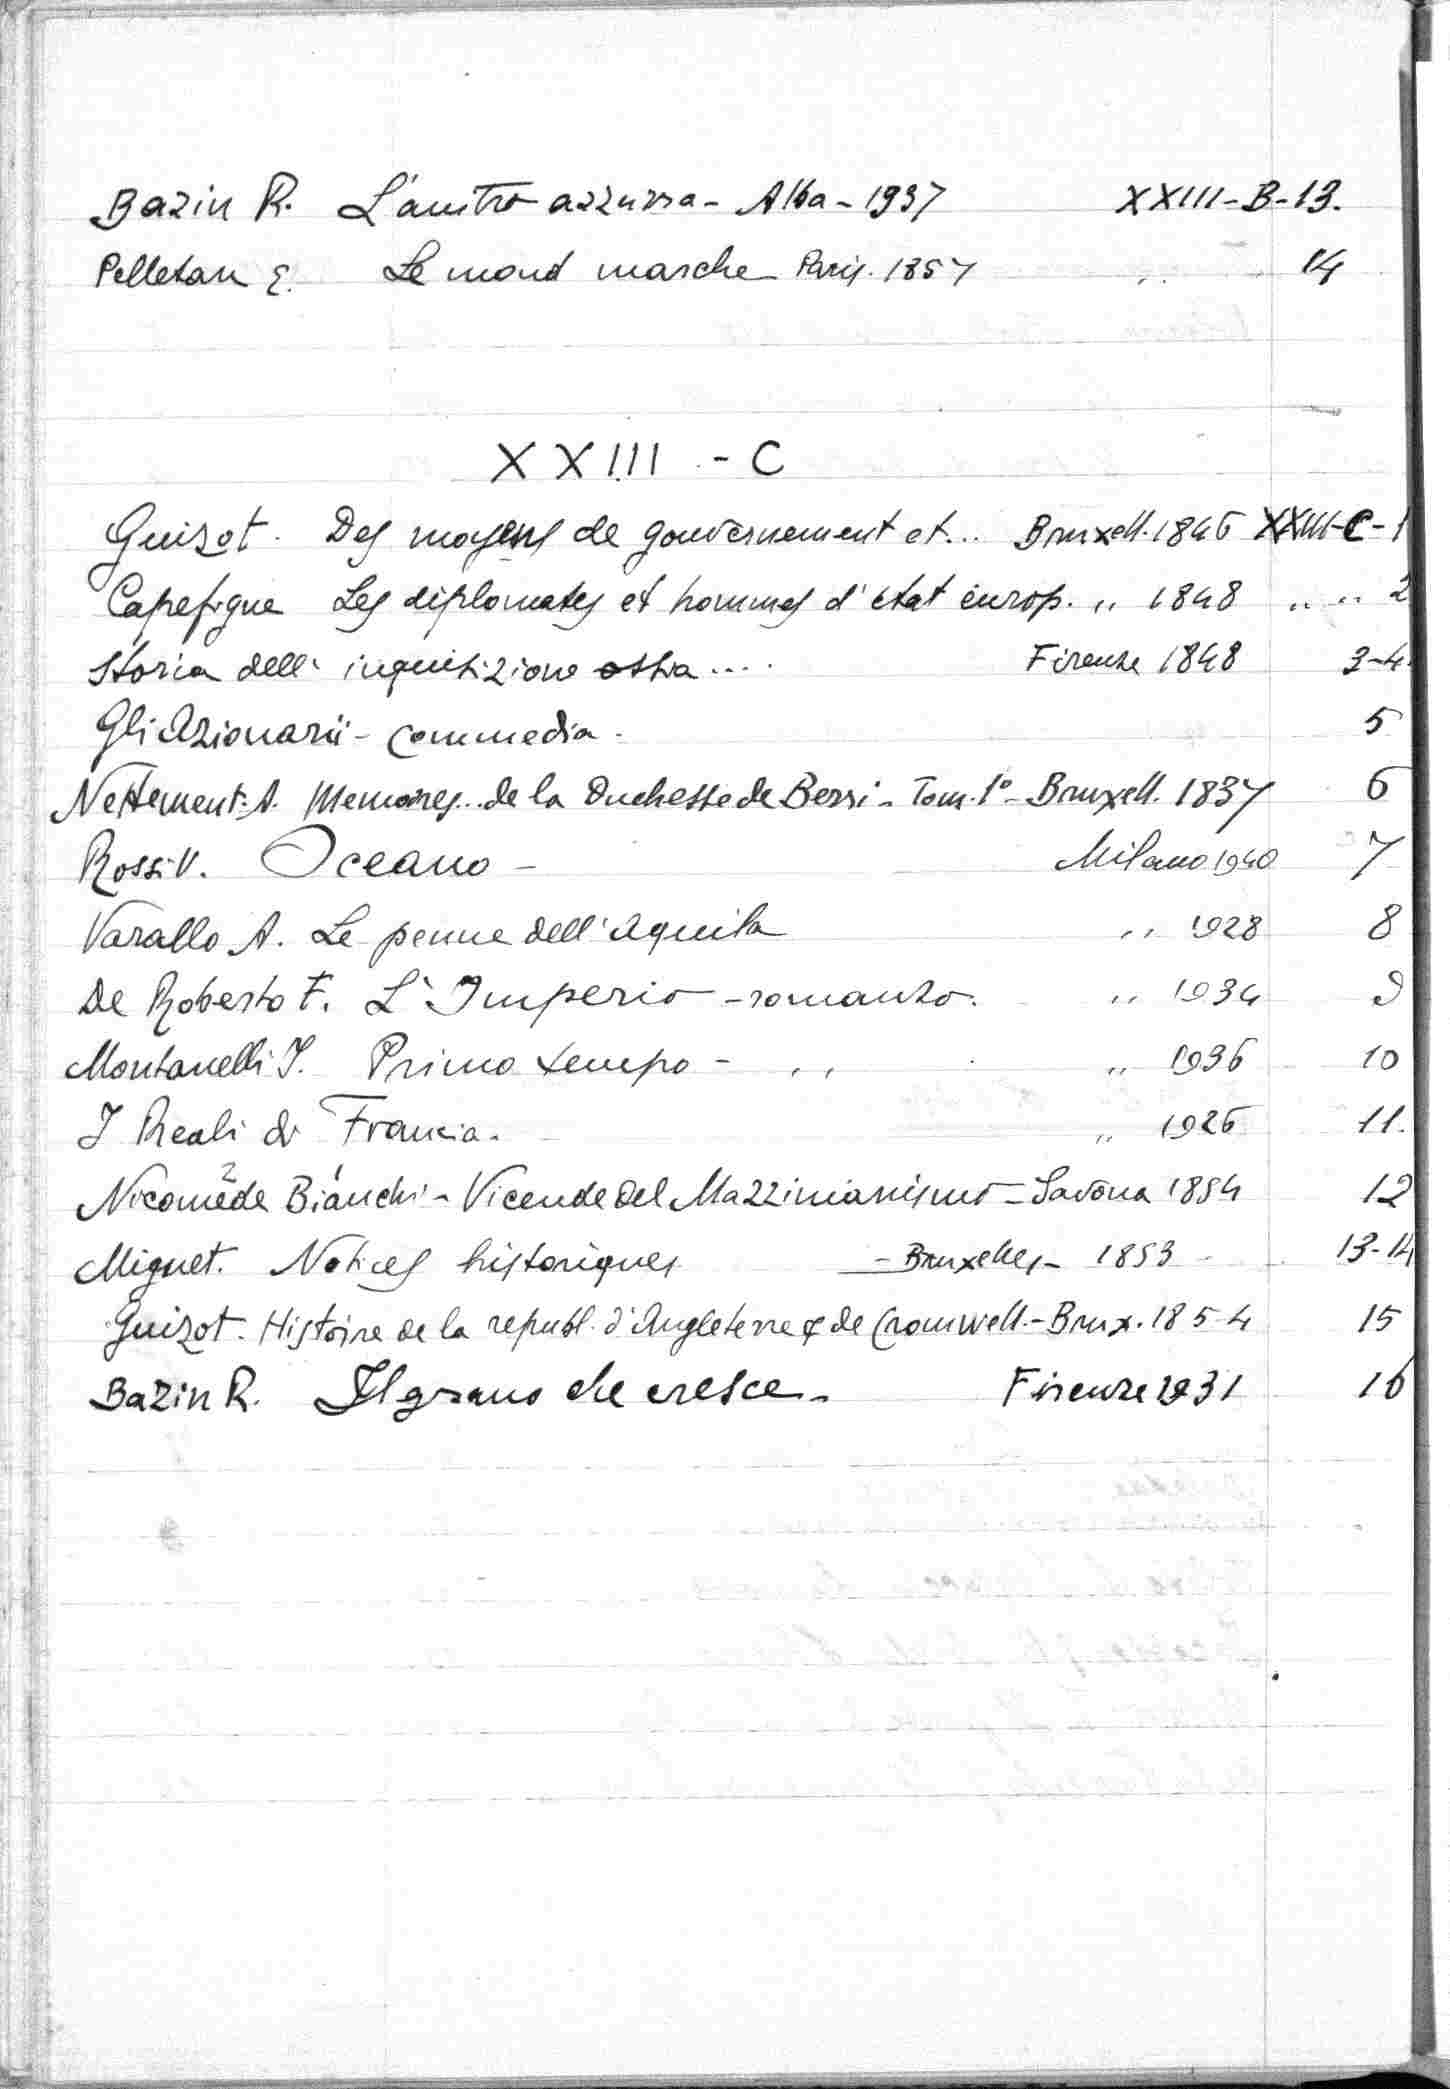 Bazin R. L'anitra azzurra - Alba - 1937 XXIII - B - 13.
Pelletan E. Le mond marche Paris. 1857 ,, 14
XXIII - C
Guizot. Des moyens de gouvernement et... Bruxell. 1846 XXIII - C - 1
Capefigue Les diplomates et hommes d'etat europ. ,, 1848 ,, ,, 2
Storia dell' inquisizione ossia .... Firenze 1848 3-4.
Gli Azionarii - commedia. 5
Nettement. A. Memoires. de la Duchesse de Berri - Tom. 1° - Bruxell. 1837 6
Rossi V. Oceano - Milano 1940 7
Varallo A. Le penne dell'aquila ,, 1928 8
De Roberto F. L'Imperio - romanzo. ,, 1934 9
Montanelli I. Primo tempo - ,, ,, 1936 10
I Reali di Francia. ,, 1926 11.
Nicomede Bianchi - Vicende del Mazzinianismo - Savona 1854 12
Mignet. Notices historiques - Bruxelles - 1853 13-14
Guizot. Histoire de la republ. d'Angleterre & de Cromwell. - Brux. 1854 15
Bazin R. Il grano che cresce - Firenze 1931 16